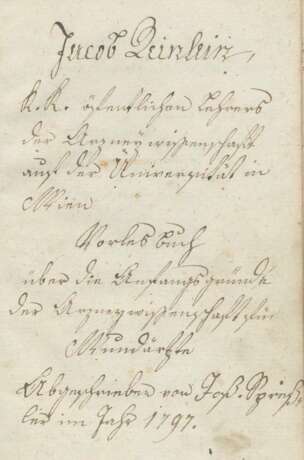 Jacob Reinlein,
K. K. öffentlichen Lehrers
der Arzneywissenschaft
auf der Universität in
Wien
Vorlesbuch
über die Anfangsgründe
der Arzneywissenschaft für
Wundärzte
Abgeschrieben von Jos. Spreiß
ler im Jahr 1797.